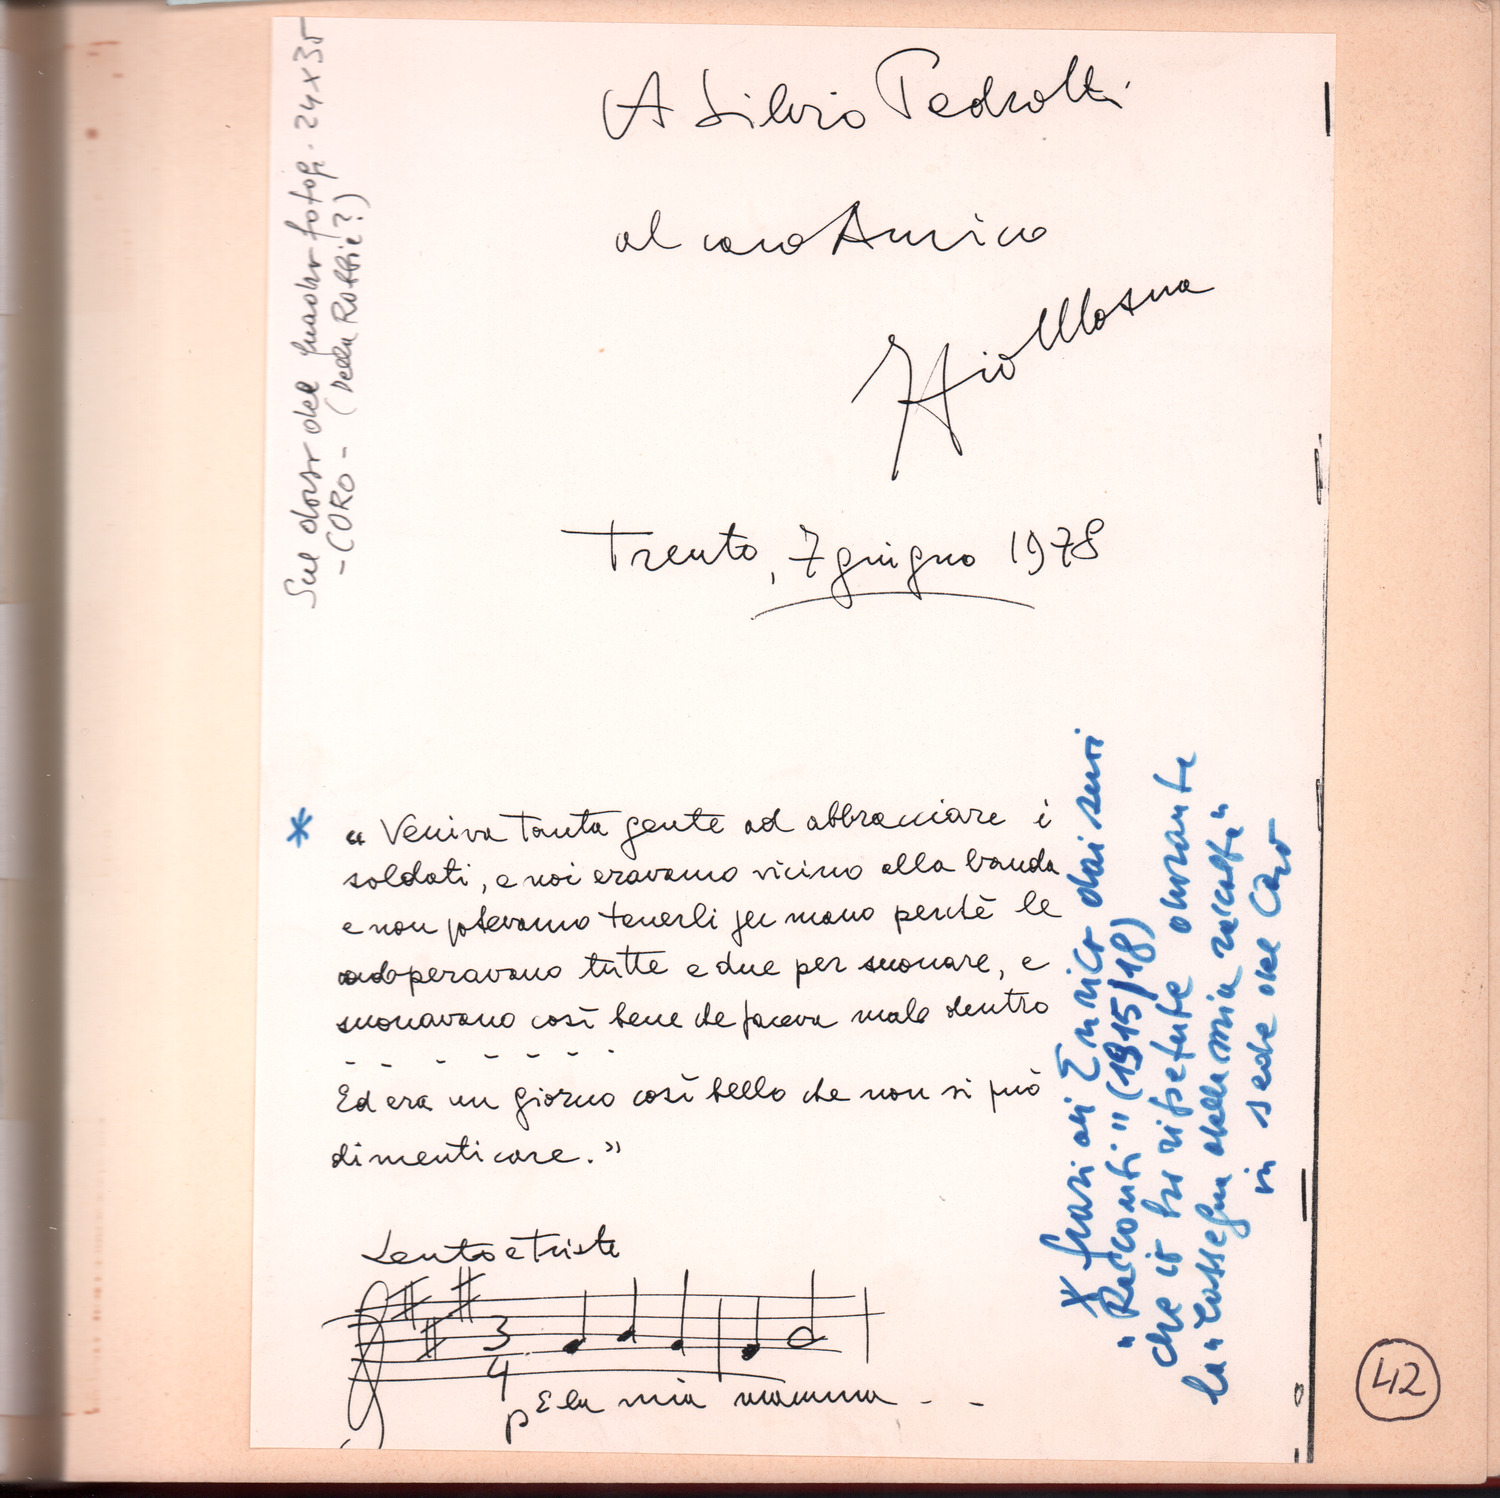 Sul dorso del quadro fotogr. 24x35
- CORO - (Della Robbia?)
A Silvio Pedrotti
al caro Amico
Mosna
Trento, 7 giugno 1978
* "Veniva tanta gente ad abbracciare i
soldati, e noi eravamo vicino alla banda
e non potevamo tenerli per mano perchè le
adoperavano tutte e due per suonare, e
suonavano così bene che faceva male dentro
- - - - - - -
Ed era un giorno così bello che non si può
dimenticare."
Lento e triste
3
4
p E la mia mamma - -
* frasi di Enrico dai suoi
"Racconti" (1915/18)
che io ho ripetute durante
la "consegna della mia raccolta"
in sede del Coro
42